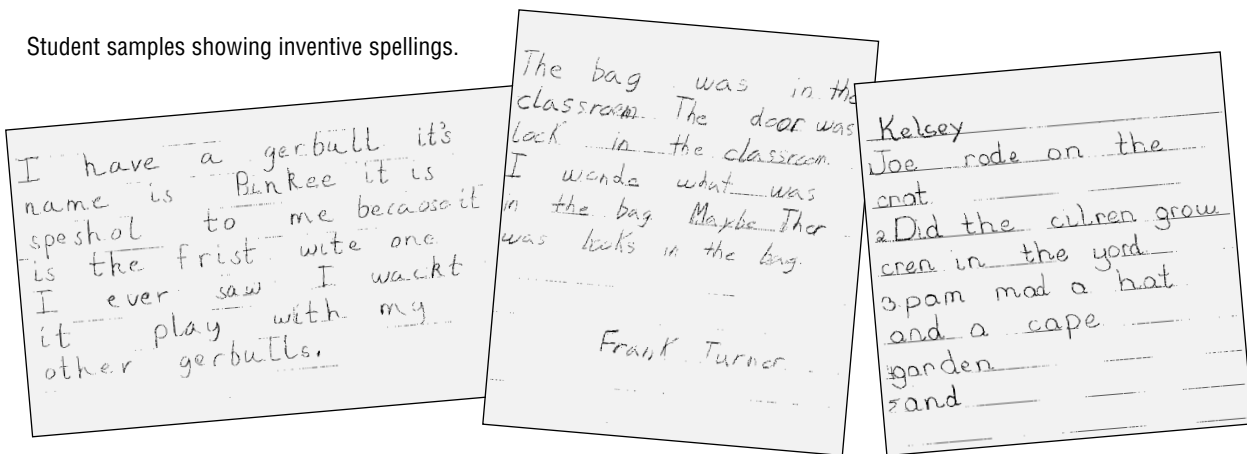 Student samples showing inventive spellings.
I have a gerbull it's
name is Binkee it is
speshol to me becaose it
is the frist wite one
I ever saw I wackt
it play with my
other gerbulls.
The bag was in the
classroom The door was
lock in the classroom
I wonde what was
in the bag Maybe Ther
was books in the bag.
Frank Turner
Kelsey
Joe rode on the
crat
2 Did the cilren grow
cren in the yord
3. pam mad a hat
and a cape
garden
5 and